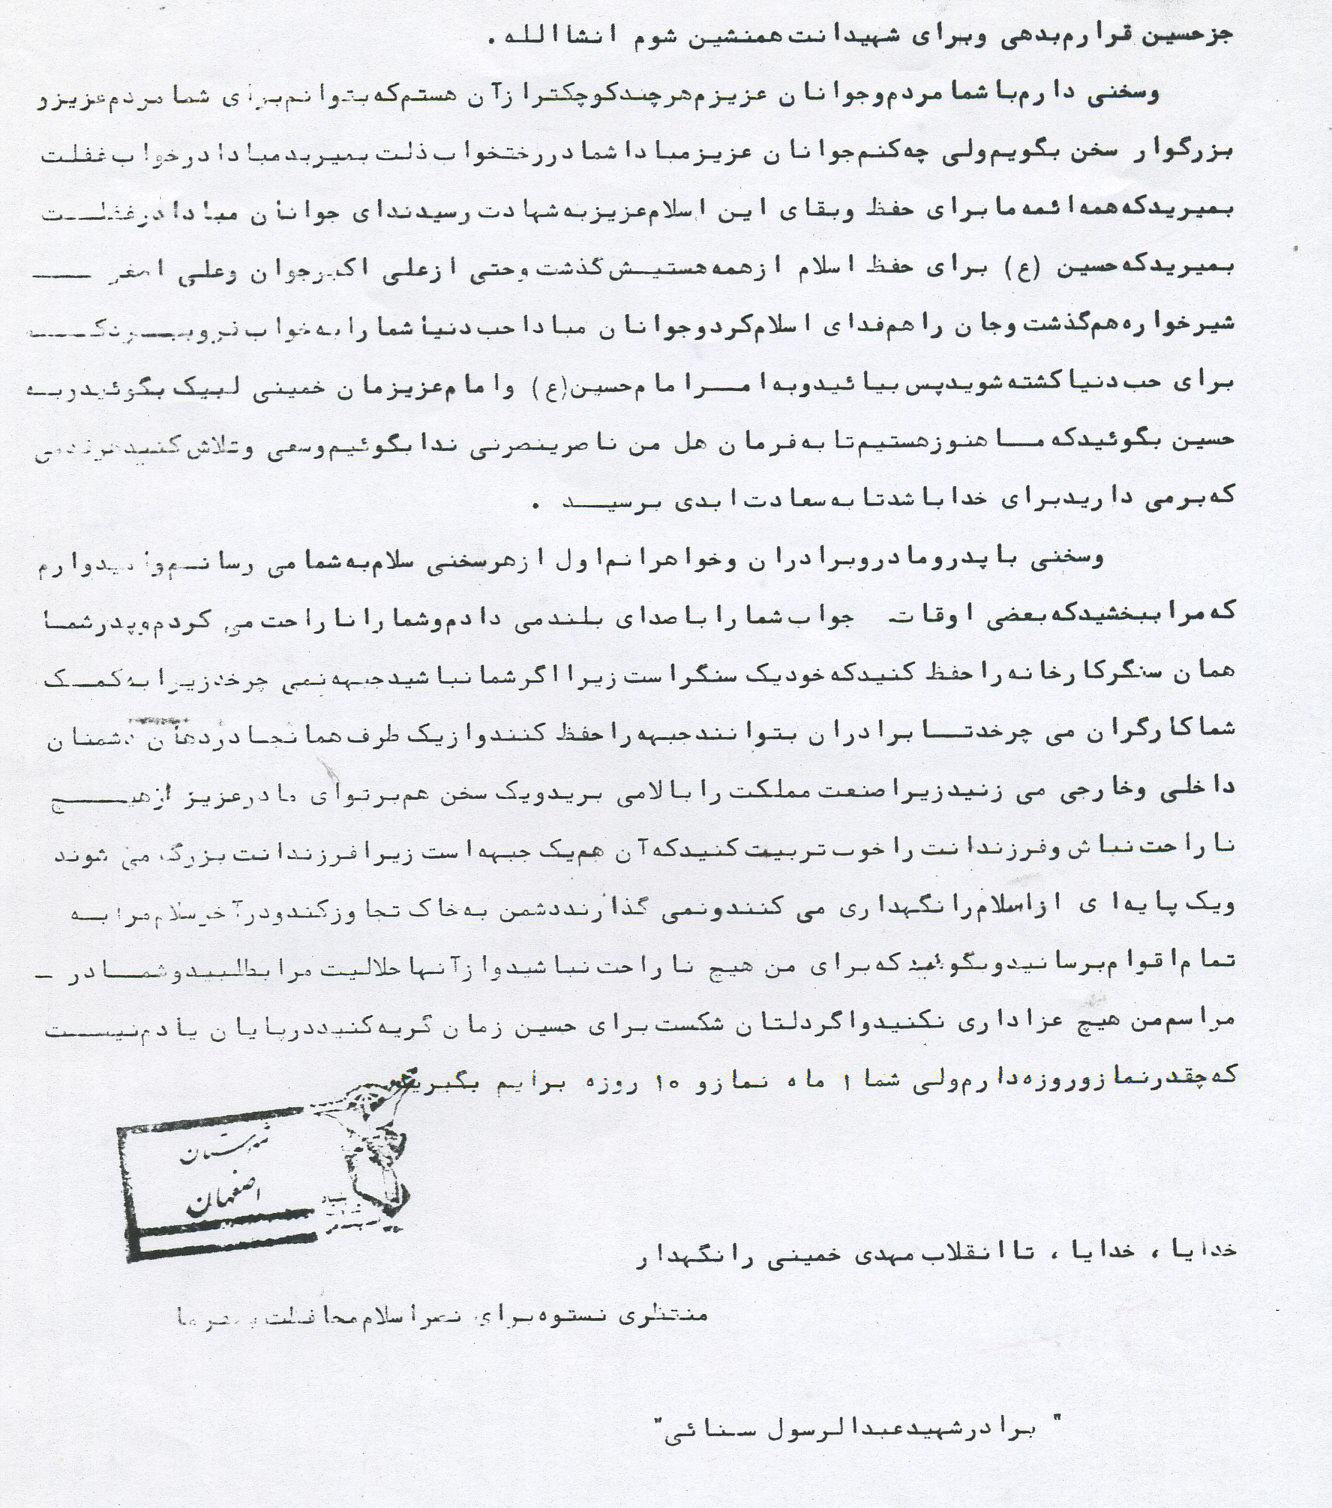 جز حسین قرارم بدهی وبرای شهیدانت همنشین شوم انشاالله .
وسخنی دارم با شما مردم وجوانان عزیزم هرچند کوچکتر از آن هستم که بتوانم برای شما مردم عزیز و
بزرگوار سخن بگویم ولی چه کنم جوانان عزیز مبادا شما در رختخواب ذلت بمیرید مبادا در خواب غفلت
بمیرید که همه ائمه ما برای حفظ وبقای این اسلام عزیز به شهادت رسیدند ای جوانان مبادا در غفلت
بمیرید که حسین (ع) برای حفظ اسلام از همه هستیش گذشت وحتی از علی اکبر جوان وعلی اصغر
شیرخواره هم گذشت وجان را هم فدای اسلام کرد وجوانان مبادا حب دنیا شما را به خواب فرو ببرد که
برای حب دنیا کشته شوید پس بیائید وبه امر امام حسین (ع) وامام عزیزمان خمینی لبیک بگوئید و به
حسین بگوئید که ما هنوز هستیم تا به فرمان هل من ناصر ینصرنی ندا بگوئیم وسعی وتلاش کنید هر قدمی
که بر می دارید برای خدا باشد تا به سعادت ابدی برسید .
وسخنی با پدر ومادر وبرادران وخواهرانم اول از هر سخنی سلام به شما می رسانم وامیدوارم
که مرا ببخشید که بعضی اوقات جواب شما را با صدای بلند می دادم وشما را ناراحت می کردم وپدر شما
همان سنگر کارخانه را حفظ کنید که خود یک سنگر است زیرا اگر شما نباشید جبهه نمی چرخد زیرا به کمک
شما کارگران می چرخد تا برادران بتوانند جبهه را حفظ کنند واز یک طرف همانجا در دهان دشمنان
داخلی وخارجی می زنید زیرا صنعت مملکت را بالا می برید ویک سخن هم بر تو ای مادر عزیز از هیچ
ناراحت نباش وفرزندانت را خوب تربیت کنید که آن هم یک جبهه است زیرا فرزندانت بزرگ می شوند
ویک پایه ای از اسلام را نگهداری می کنند ونمی گذارند دشمن به خاک تجاوز کند ودر آخر سلام مرا به
تمام اقوام برسانید وبگوئید که برای من هیچ ناراحت نباشید واز آنها حلالیت مرا بطلبید وشما در -
مراسم من هیچ عزاداری نکنید واگر دلتان شکست برای حسین زمان گریه کنید در پایان یادم نیست
که چقدر نماز وروزه دارم ولی شما ۱ ماه نماز و ۱۰ روزه برایم بگیرید
شهرستان
اصفهان
بنیاد
خدایا ، خدایا ، تا انقلاب مهدی خمینی را نگهدار
منتظری نستوه برای نصر اسلام محافظت بفرما
" برادر شهید عبدالرسول سنائی"